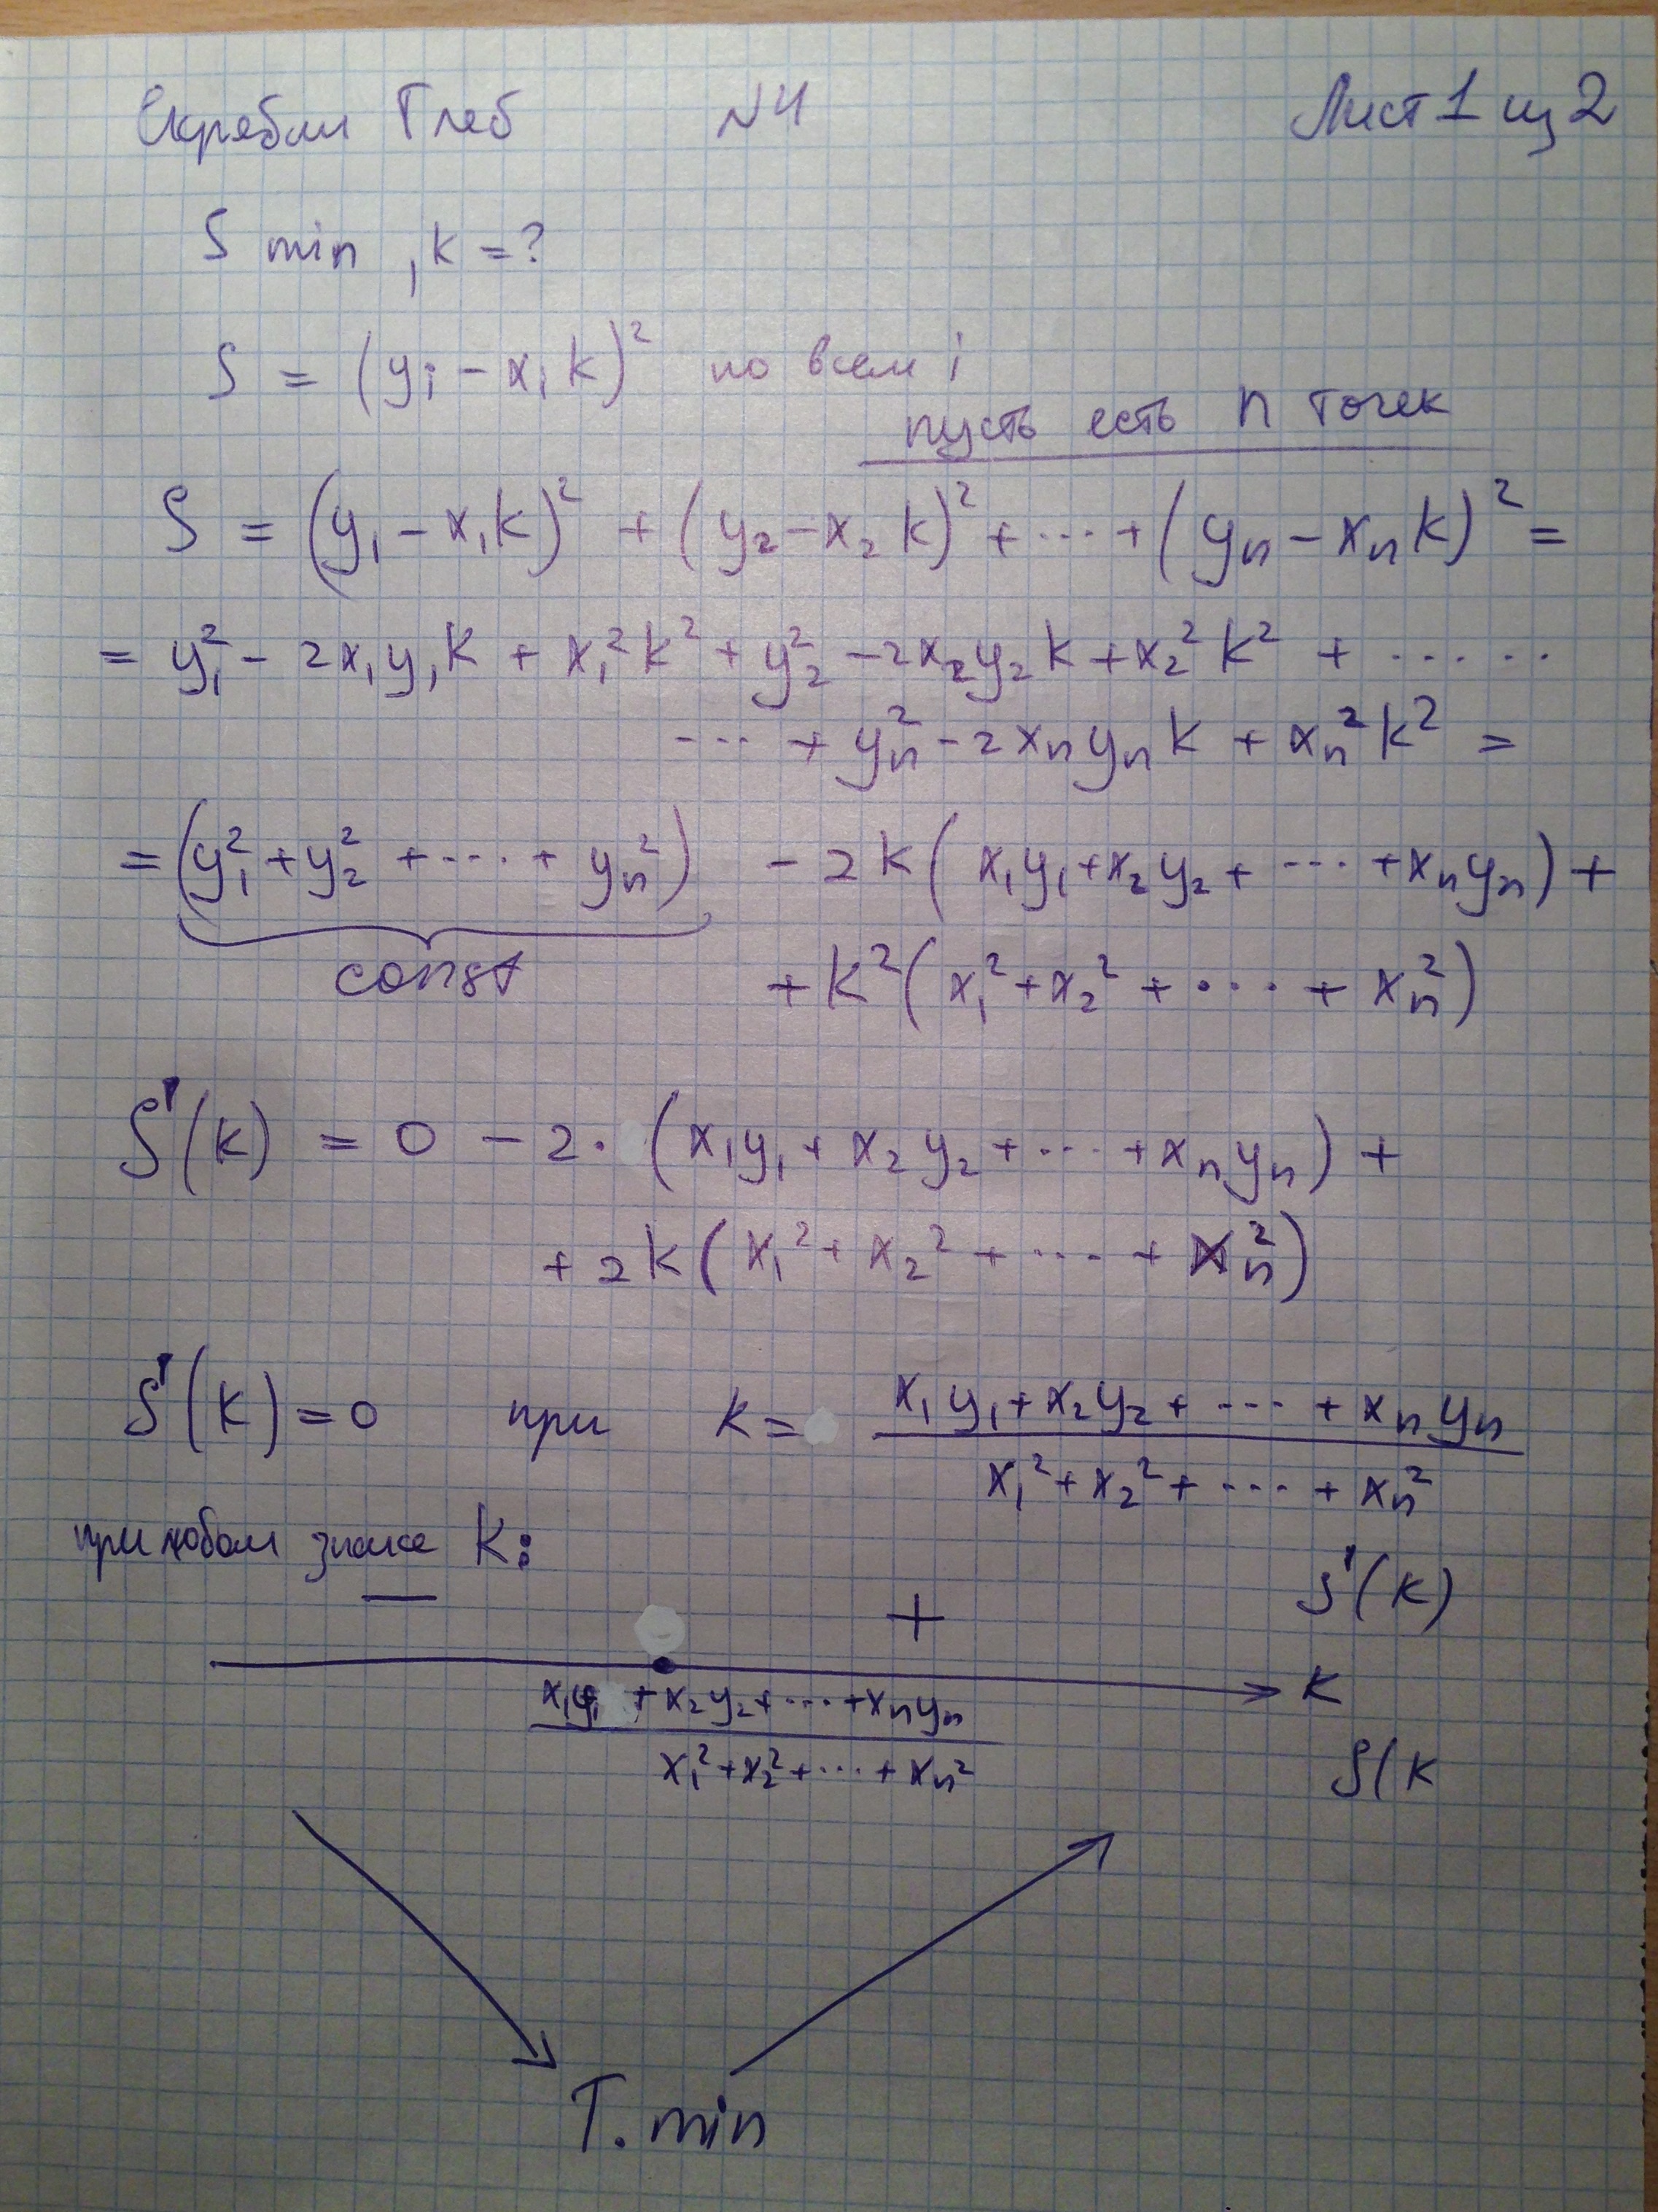 Скребли Глеб N4 Лист 1 из 2
S min , k = ?
S = (yᵢ - xᵢ k)² по всем i
пусть есть n точек
S = (y₁ - x₁k)² + (y₂ - x₂ k)² + ... + (yₙ - xₙ k)² =
= y₁² - 2x₁y₁k + x₁²k² + y₂² - 2x₂y₂k + x₂²k² + ......
... + yₙ² - 2xₙyₙk + xₙ²k² =
= (y₁² + y₂² + ... + yₙ²) - 2k(x₁y₁ + x₂y₂ + ... + xₙyₙ) +
const + k²(x₁² + x₂² + ... + xₙ²)
S'(k) = 0 - 2·(x₁y₁ + x₂y₂ + ... + xₙyₙ) +
+ 2k(x₁² + x₂² + ... + xₙ²)
S'(k) = 0 при k = x₁y₁ + x₂y₂ + ... + xₙyₙ
x₁² + x₂² + ... + xₙ²
при любом знаке k:
− + S'(k)
k
x₁y₁ + x₂y₂ + ... + xₙyₙ
x₁² + x₂² + ... + xₙ²
S(k
T. min